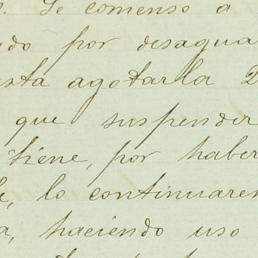 Se comenso a
do por desagua
sta agotarla
que suspender
tiene, por haber
lo continuare
haciendo uso